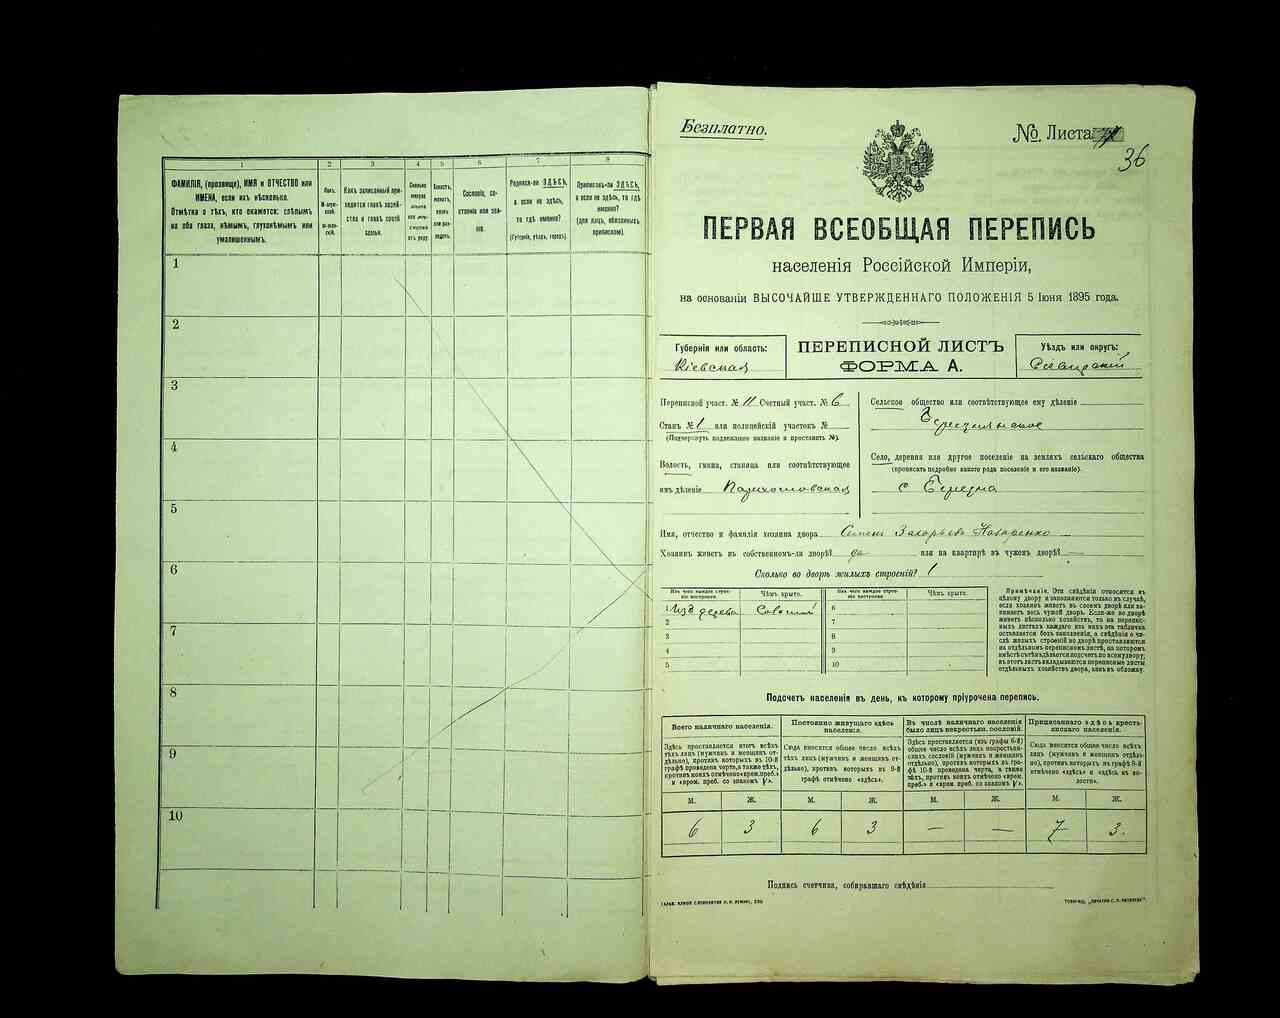 1
2
3
4
5
6
7
8
ФАМИЛІЯ, (прозвище), ИМЯ и ОТЧЕСТВО или
ИМЕНА, если ихъ нѣсколько.
Отмѣтка о тѣхъ, кто окажется: слѣпымъ
на оба глаза, нѣмымъ, глухонѣмымъ или
умалишеннымъ.
Какъ записанный при-
ходится главѣ хозяй-
ства и главѣ своей
семьи.
Сословіе, со-
стояніе или зва-
ніе.
Родился-ли ЗДѢСЬ,
а если не здѣсь,
то гдѣ именно?
(Губернія, уѣздъ, городъ).
Приписанъ-ли ЗДѢСЬ,
а если не здѣсь, то гдѣ
именно?
(для лицъ, обязанныхъ
припискою).
1
2
3
4
5
6
7
8
9
10
Безплатно.
№ Листа
36
ПЕРВАЯ ВСЕОБЩАЯ ПЕРЕПИСЬ
населенія Россійской Имперіи,
на основаніи ВЫСОЧАЙШЕ УТВЕРЖДЕННАГО ПОЛОЖЕНІЯ 5 Іюня 1895 года.
Губернія или область:
Кіевская
ПЕРЕПИСНОЙ ЛИСТЪ
ФОРМА А.
Уѣздъ или округъ:
Переписной участ. № 11 Счетный участ. № 6
Станъ № 1 или полицейскій участокъ №
(Подчеркнуть подлежащее названіе и проставить №).
Волость, гмина, станица или соотвѣтствующее
имъ дѣленіе
Сельское общество или соотвѣтствующее ему дѣленіе
Село, деревня или другое поселеніе на земляхъ сельскаго общества
(прописать подробно какого рода поселеніе и его названіе).
с Березна
Имя, отчество и фамилія хозяина двора Семенъ Захарьевъ Назаренко
Хозяинъ живетъ въ собственномъ-ли дворѣ? да или на квартирѣ въ чужомъ дворѣ? —
Сколько во дворѣ жилыхъ строеній? 1
Изъ чего каждое строе-
ніе построено.
Чѣмъ крыто.
Изъ чего каждое строе-
ніе построено.
Чѣмъ крыто.
1 Изъ дерева
2
3
4
5
6
7
8
9
10
Примѣчаніе. Эти свѣдѣнія относятся къ
цѣлому двору и заполняются только въ случаѣ,
если хозяинъ живетъ въ своемъ дворѣ или на-
нимаетъ весь чужой дворъ. Если-же во дворѣ
живетъ нѣсколько хозяйствъ, то на перепис-
ныхъ листахъ каждаго изъ нихъ эта табличка
оставляется безъ заполненія, а свѣдѣнія о чи-
слѣ жилыхъ строеній во дворѣ проставляются
на отдѣльномъ переписномъ листѣ, на которомъ
вмѣстѣ съ тѣмъ дѣлается подсчетъ по всему двору;
въ этотъ листъ вкладываются переписные листы
отдѣльныхъ хозяйствъ двора, какъ въ обложку.
Подсчетъ населенія въ день, къ которому пріурочена перепись.
Всего наличнаго населенія.
Постоянно живущаго здѣсь
населенія.
Въ числѣ наличнаго населенія
было лицъ некрестьян. сословій.
Приписаннаго здѣсь кресть-
янскаго населенія.
Здѣсь проставляется итогъ всѣхъ
тѣхъ лицъ (мужчинъ и женщинъ от-
дѣльно), противъ которыхъ въ 10-й
графѣ проведена черта, а также тѣхъ,
противъ коихъ отмѣчено «врем. преб.»
и «врем. преб. со знакомъ V».
Сюда вносится общее число всѣхъ
тѣхъ лицъ (мужчинъ и женщинъ от-
дѣльно), противъ которыхъ въ 9-й
графѣ отмѣчено «здѣсь».
Здѣсь проставляется (изъ графы 6-й)
общее число лицъ некрестьян-
скихъ сословій (мужчинъ и женщинъ
отдѣльно), противъ которыхъ въ гра-
фѣ 10-й проведена черта, а также
тѣхъ, противъ коихъ отмѣчено «врем.
преб.» и «врем. преб. со знакомъ V».
Сюда вносится общее число всѣхъ
лицъ (мужчинъ и женщинъ отдѣль-
но), противъ которыхъ въ графѣ 8-й
отмѣчено «здѣсь» и «здѣсь въ во-
лости».
М. Ж. М. Ж. М. Ж. М. Ж.
6 3 6 3 — — 7 3.
Подпись счетчика, собиравшаго свѣдѣнія